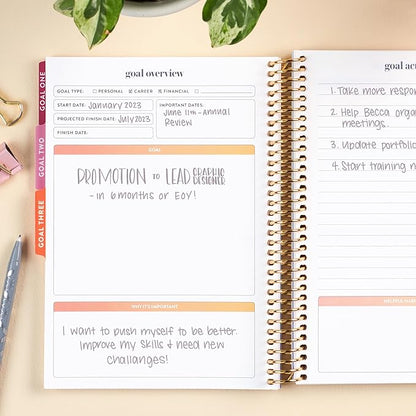 goal overview
GOAL TYPE: PERSONAL CAREER FINANCIAL
START DATE: January 2023
PROJECTED FINISH DATE: July 2023
FINISH DATE:
IMPORTANT DATES:
June 11th - Annual
Review
GOAL
PROMOTION to LEAD GRAPHIC DESIGNER
- in 6 months or EOY!
WHY IT'S IMPORTANT
I want to push myself to be better.
Improve my skills & need new
challanges!
GOAL ONE
GOAL TWO
GOAL THREE
goal ac
1. Take more respon
2. Help Becca organ
meetings.
3. Update portfolio
4. Start training n
HELPFUL HABI